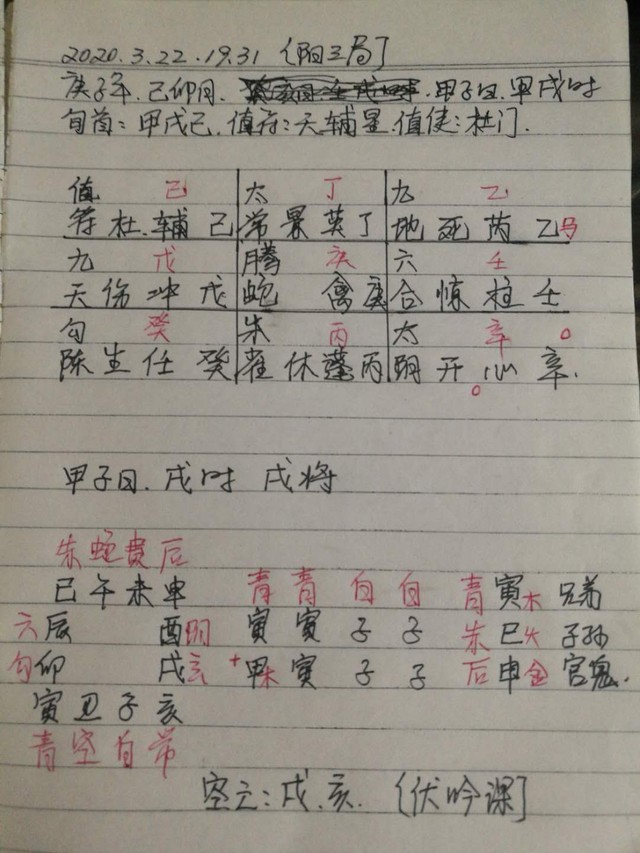 2020.3.22.19.31 〔阳三局〕
庚子年.己卯月. 甲子日.甲戌时
旬首:甲戌己.值符:天辅星.值使:杜门.
值 己 太 丁 九 乙
符杜.辅己 常景英丁 地死芮乙马
九 戊 腾 庚 六 壬
天伤冲戊 蛇 禽庚 合惊柱壬
勾 癸 朱 丙 太 辛 o
陈生任癸 雀休蓬丙 阴开心辛.
o
甲子日.戌时 戌将
朱蛇贵后
巳午未申 青青白白 青寅木 兄弟
六辰 酉阴 寅寅子子 朱巳火 子孙
勾卯 戌玄 +甲木寅子子 后申金 官鬼.
寅丑子亥
青空白常
空亡:戌.亥.〔伏吟课〕